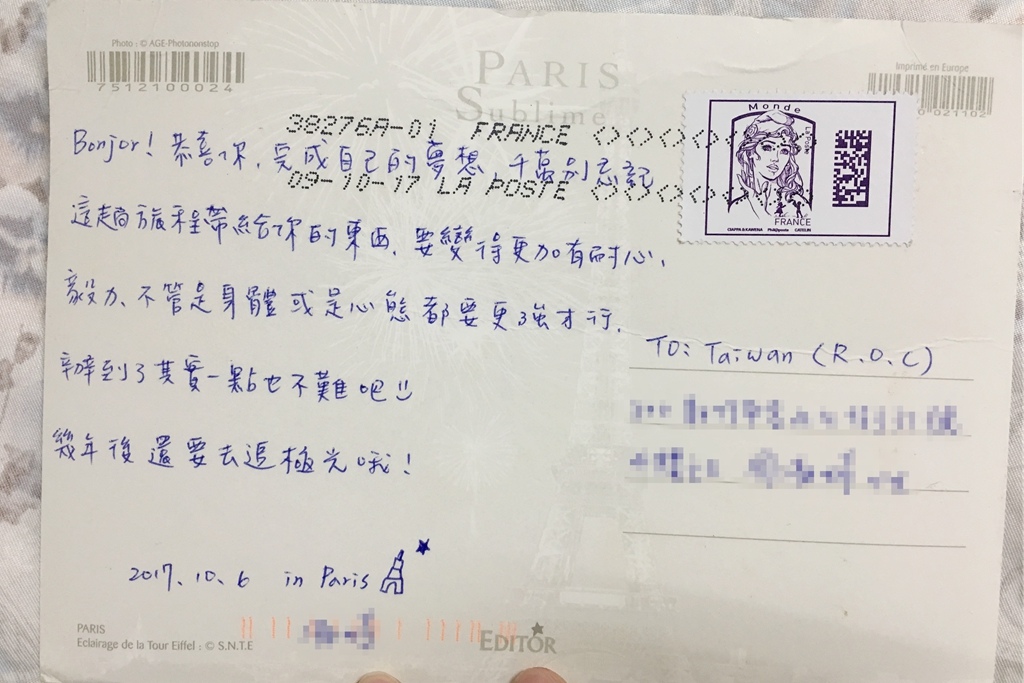 Photo : © AGE-Photononstop
7512100024
PARIS
Sublime
Imprimé en Europe
021102
38276A-01 FRANCE
09-10-17 LA POSTE
Monde
LA POSTE
FRANCE
CIAPPA & KAWENA Phil@poste CATELIN
Bonjor! 恭喜你,完成自己的夢想,千萬別忘記
這趟旅程帶給你的東西,要變得更加有耐心、
毅力、不管是身體或是心態都要更強才行.
辦到了其實一點也不難吧
幾年後還要去追極光哦!
2017.10.6 in Paris
TO: Taiwan (R.O.C)
PARIS
Eclairage de la Tour Eiffel : © S.N.T.E
EDITOR